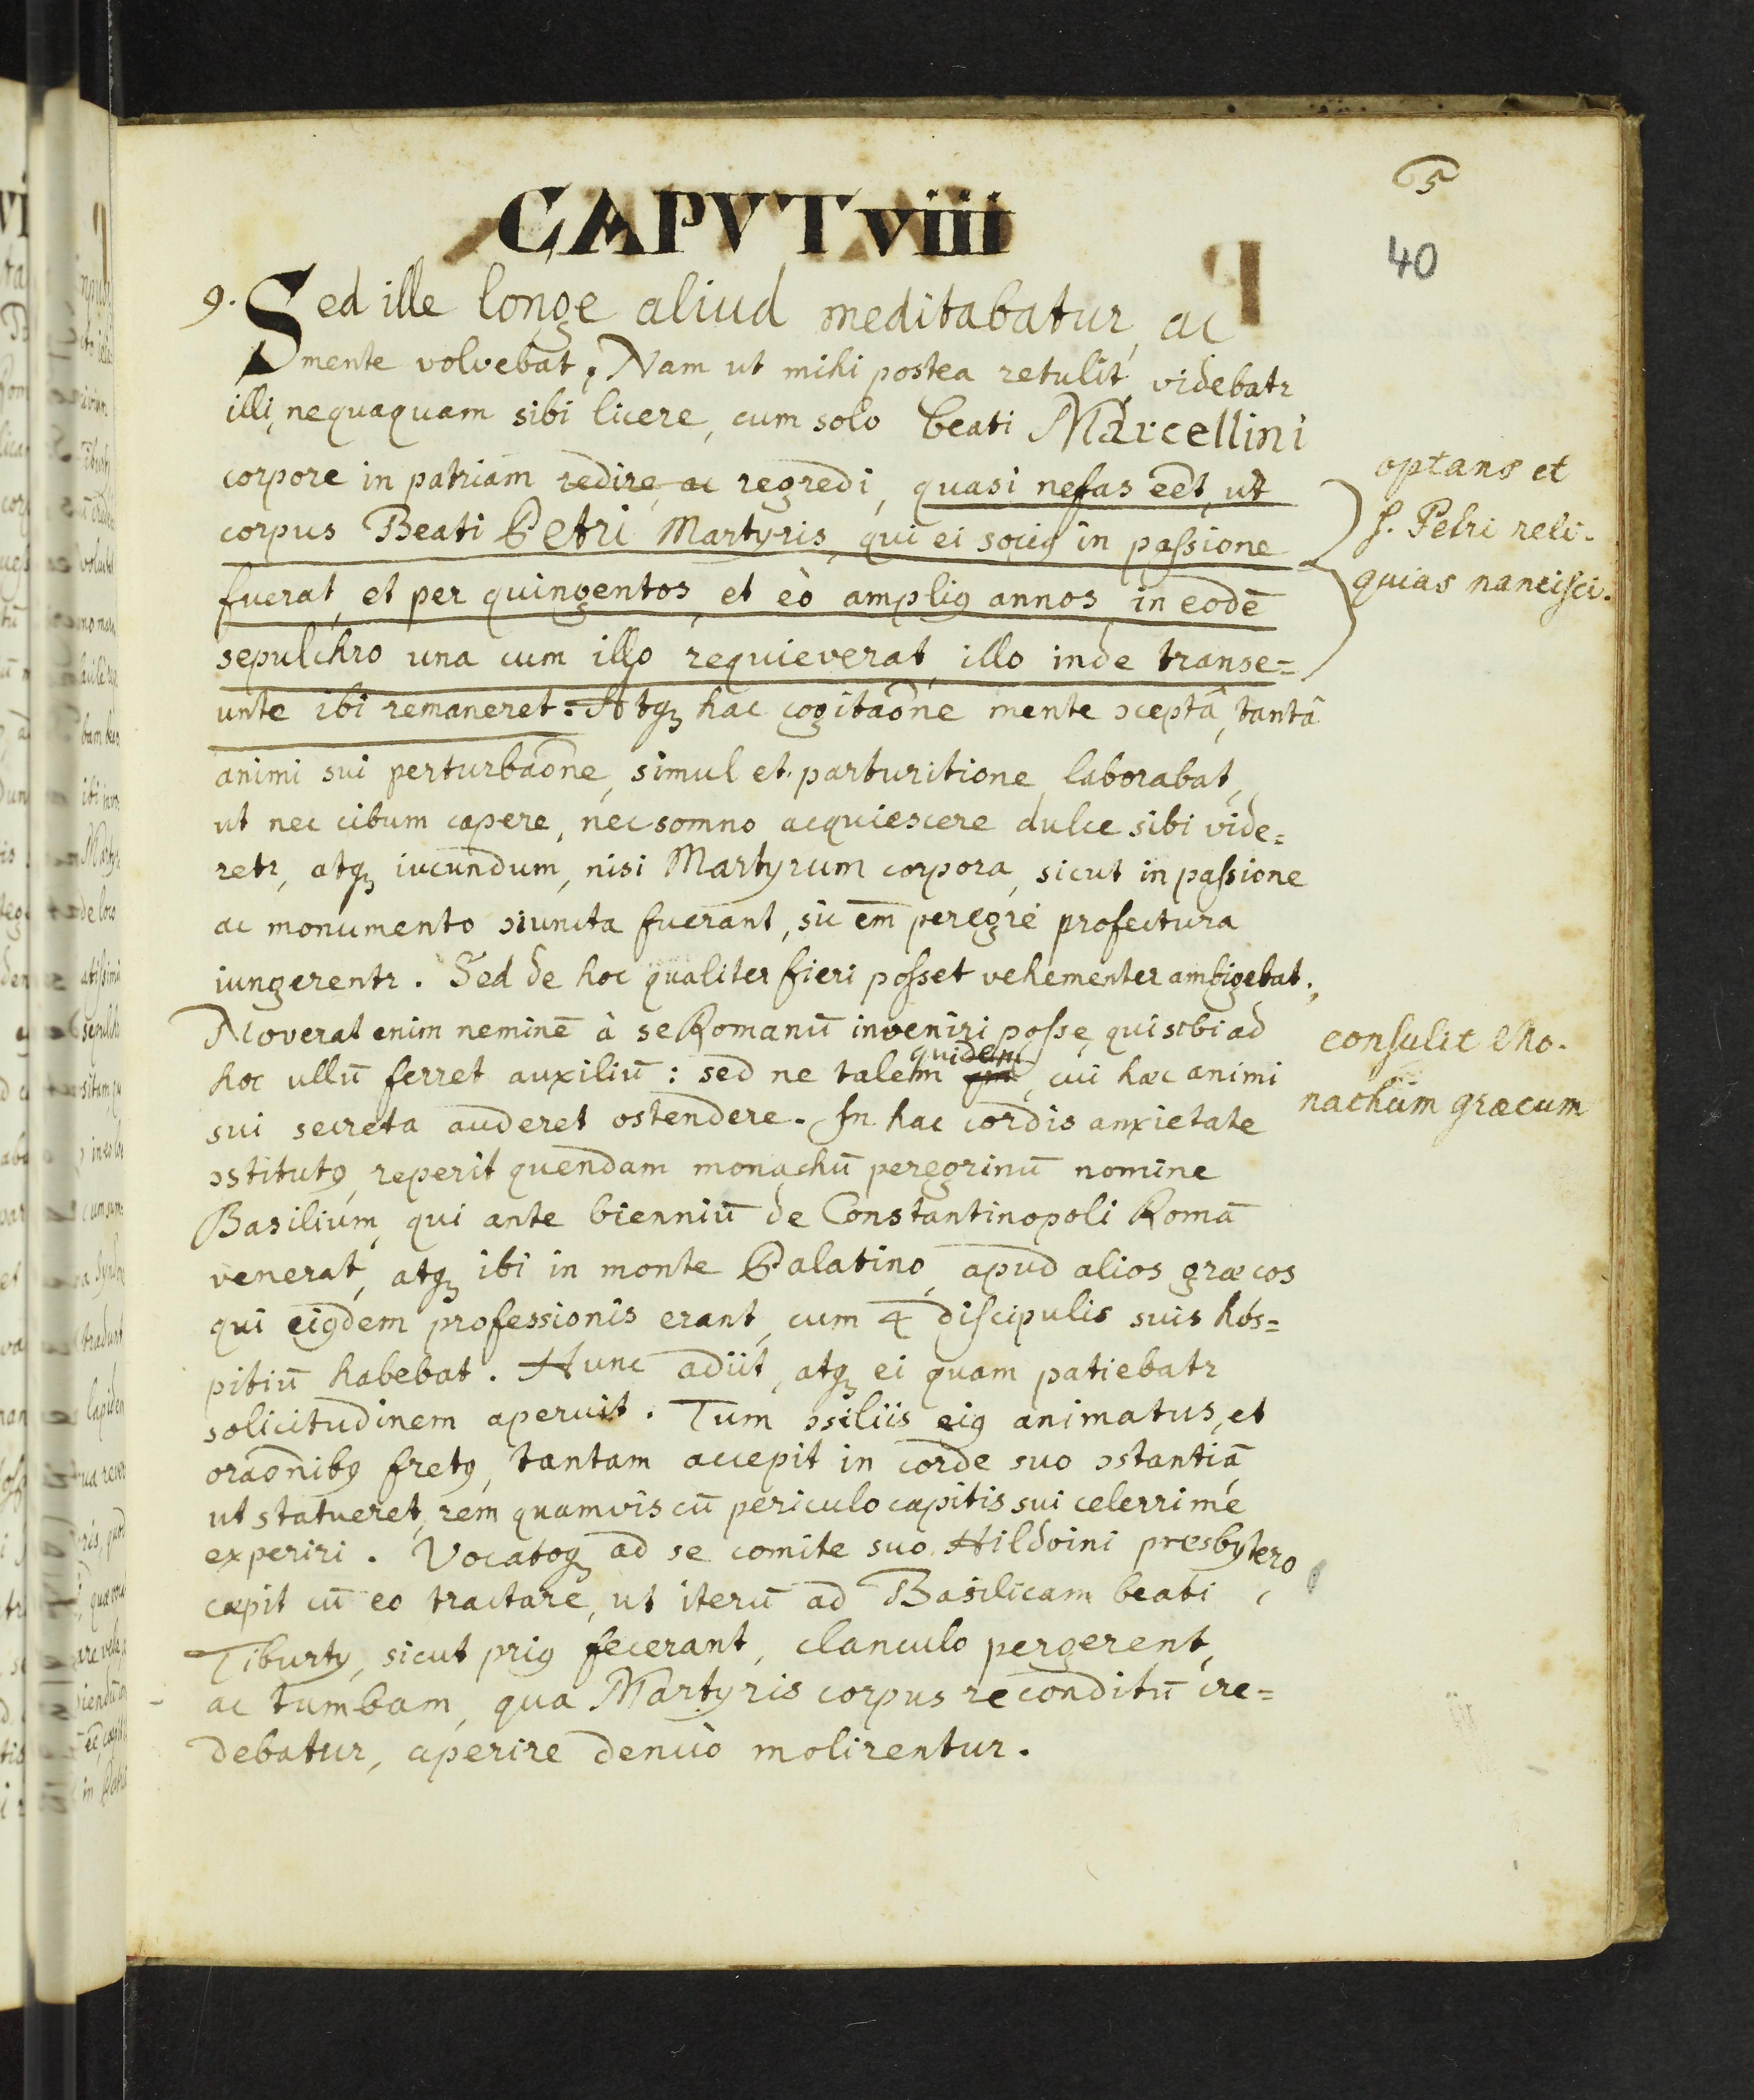 5
40
CAPVT viiii
9. Sed ille longe aliud meditabatur, ac
mente volvebat; Nam ut mihi postea retulit, videbatr
illi, nequaquam sibi licere, cum solo beati Marcellini
corpore in patriam redire, ac regredi, quasi nefas eēt, ut
corpus Beati Petri Martyris, qui ei sociꝰ in passione
fuerat, et per quingentos, et eò ampliꝰ annos, in eodē
sepulchro una cum illo requieverat, illo inde transe=
unte ibi remaneret. Atqꝫ hac cogitaōne mente ↄceptâ, tantâ
animi sui perturbaōne, simul et parturitione laborabat,
ut nec cibum capere, nec somno acquiescere dulce sibi vide=
retr, atqꝫ iucundum, nisi Martyrum corpora, sicut in passione
ac monumento ↄiuncta fuerant, sic em̄ peregrè profectura
iungerentr. Sed de hoc qualiter fieri posset vehementer ambigebat;
Noverat enim neminē à se Romanū inveniri posse, qui sibi ad
hoc ullū ferret auxiliū: sed ne talem quidem, cui hæc animi
sui secreta auderet ostendere. In hac cordis anxietate
ↄstitutꝰ, reperit quendam monachū peregrinū nomine
Basilium, qui ante bienniū de Constantinopoli Romā
venerat, atqꝫ ibi in monte Palatino, apud alios græcos
qui eiꝰdem professionis erant, cum 4 discipulis suis hos=
pitiū habebat. Hunc adiit, atqꝫ ei quam patiebatr
solicitudinem aperuit. Tum ↄsiliis eiꝰ animatus, et
oraōnibꝰ fretꝰ, tantam accepit in corde suo ↄstantiā
ut statueret, rem quamvis cū periculo capitis sui celerrimè
experiri. Vocatoqꝫ ad se comite suo Hildoini presbytero
cæpit cū eo tractare, ut iterū ad Basilicam beati
Tiburty, sicut priꝰ fecerant, clanculo pergerent,
ac tumbam, qua Martyris corpus reconditū cre=
debatur, aperire denuò molirentur.
optans et
S. Petri reli-
quias nancisci.
consulit Mo-
nachum græcum